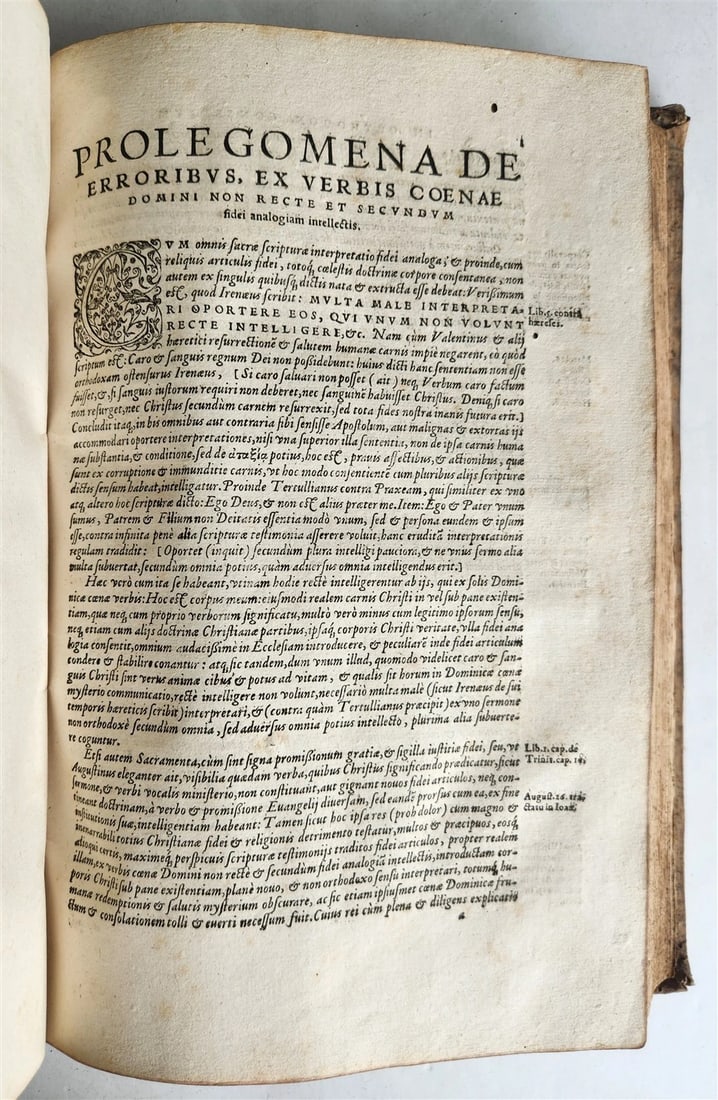 PROLEGOMENA DE
ERRORIBVS, EX VERBIS COENAE
DOMINI NON RECTE ET SECVNDVM
fidei analogiam intellectis.
CVM omnis sacræ scripturæ interpretatio fidei analoga, & proinde, cum
reliquis articulis fidei, totoq́; cœlestis doctrinæ corpore consentanea, non
autem ex singulis quibusq́; dictis nata & extructa esse debeat: Verißimum
est, quod Irenæus scribit: MVLTA MALE INTERPRETA-
RI OPORTERE EOS, QVI VNVM NON VOLVNT
RECTE INTELLIGERE, &c. Nam cùm Valentinus & alij
hæretici resurrectionē & salutem humanæ carnis impiè negarent, eò quòd
scriptum est: Caro & sanguis regnum Dei non poßidebunt: huius dicti hanc sententiam non esse
orthodoxam ostensurus Irenæus, [Si caro saluari non posset (ait) neq́; Verbum caro factum
fuisset, &, si sanguis iustorum requiri non deberet, nec sanguinē habuisset Christus. Deniq́; si caro
non resurget, nec Christus secundùm carnem resurrexit, sed tota fides nostra inanis futura erit.]
Concludit itaq́;, in his omnibus aut contraria sibi sensisse Apostolum, aut malignas & extortas ijs
accommodari oportere interpretationes, nisi vna superior illa sententia, non de ipsa carnis huma
næ substantia, & conditione, sed de ἀταξίᾳ potius, hoc est, prauis affectibus, & actionibus, quæ
sunt ex corruptione & immunditie carnis, vt hoc modo consentientē cum pluribus alijs scripturæ
dictis sensum habeat, intelligatur. Proinde Tertullianus contra Praxeam, qui similiter ex vno
atq́; altero hoc scripturæ dicto: Ego Deus, & non est alius præter me. Item: Ego & Pater vnum
sumus, Patrem & Filium non Deitatis essentia modò vnum, sed & persona eundem & ipsum
esse, contra infinita penè alia scripturæ testimonia asserere voluit, hanc eruditā interpretationis
regulam tradidit: [Oportet (inquit) secundùm plura intelligi pauciora, & ne vnus sermo alia
multa subuertat, secundùm omnia potius, quàm aduersus omnia intelligendus erit.]
Hæc verò cum ita se habeant, vtinam hodie rectè intelligerentur ab ijs, qui ex solis Domi-
nicæ cœnæ verbis: Hoc est corpus meum: eiusmodi realem carnis Christi in vel sub pane existen-
tiam, quæ neq́; cum proprio verborum significatu, multò verò minus cum legitimo ipsorum sensu,
neq́; etiam cum alijs doctrinæ Christianæ partibus, ipsaq́; corporis Christi veritate, vlla fidei ana
logia consentit, omnium audacißimè in Ecclesiam introducere, & peculiarē inde fidei articulum
condere & stabilire conantur: atq́; sic tandem, dum vnum illud, quomodo videlicet caro & san-
guis Christi sint verus animæ cibus & potus ad vitam, & qualis sit horum in Dominicæ cœnæ
mysterio communicatio, rectè intelligere non volunt, necessariò multa malè (sicut Irenæus de sui
temporis hæreticis scribit) interpretari, & (contra quàm Tertullianus præcipit) ex vno sermone
non orthodoxè secundùm omnia, sed aduersus omnia potius intellecto, plurima alia subuerte-
re coguntur.
Etsi autem Sacramenta, cùm sint signa promißionum gratiæ, & sigilla iustitiæ fidei, seu, vt
Augustinus eleganter ait, visibilia quædam verba, quibus Christus significando prædicatur, sicut
sermone, & verbi vocalis ministerio, non constituant, aut gignant nouos fidei articulos, neq́; con-
tineant doctrinam, à verbo & promißione Euangelij diuersam, sed eandē prorsus cum ea, ex fine
institutionis suæ, intelligentiam habeant: Tamen sicut hoc ipsa res (proh dolor) cum magno &
inenarrabili totius Christianæ fidei & religionis detrimento testatur, multos & præcipuos, eosq́;
alioqui certis, maximeq́; perspicuis scripturæ testimonijs traditos fidei articulos, propter realem
illam, ex verbis cœnæ Domini non rectè & secundùm fidei analogiā intellectis, introductam cor-
poris Christi sub pane existentiam, planè nouo, & non orthodoxo sensu interpretari, totumq́; hu-
manæ redemptionis & salutis mysterium obscurare, ac sic etiam ipsiusmet cœnæ Dominicæ fru-
ctum & consolationem tolli & euerti necessum fuit. Cuius rei cùm plena & diligens explicatio
Lib. 5. contra
hæreses.
Lib. 1. cap. de
Trinit. cap. 15.
August. tra-
ctatu in Ioan.